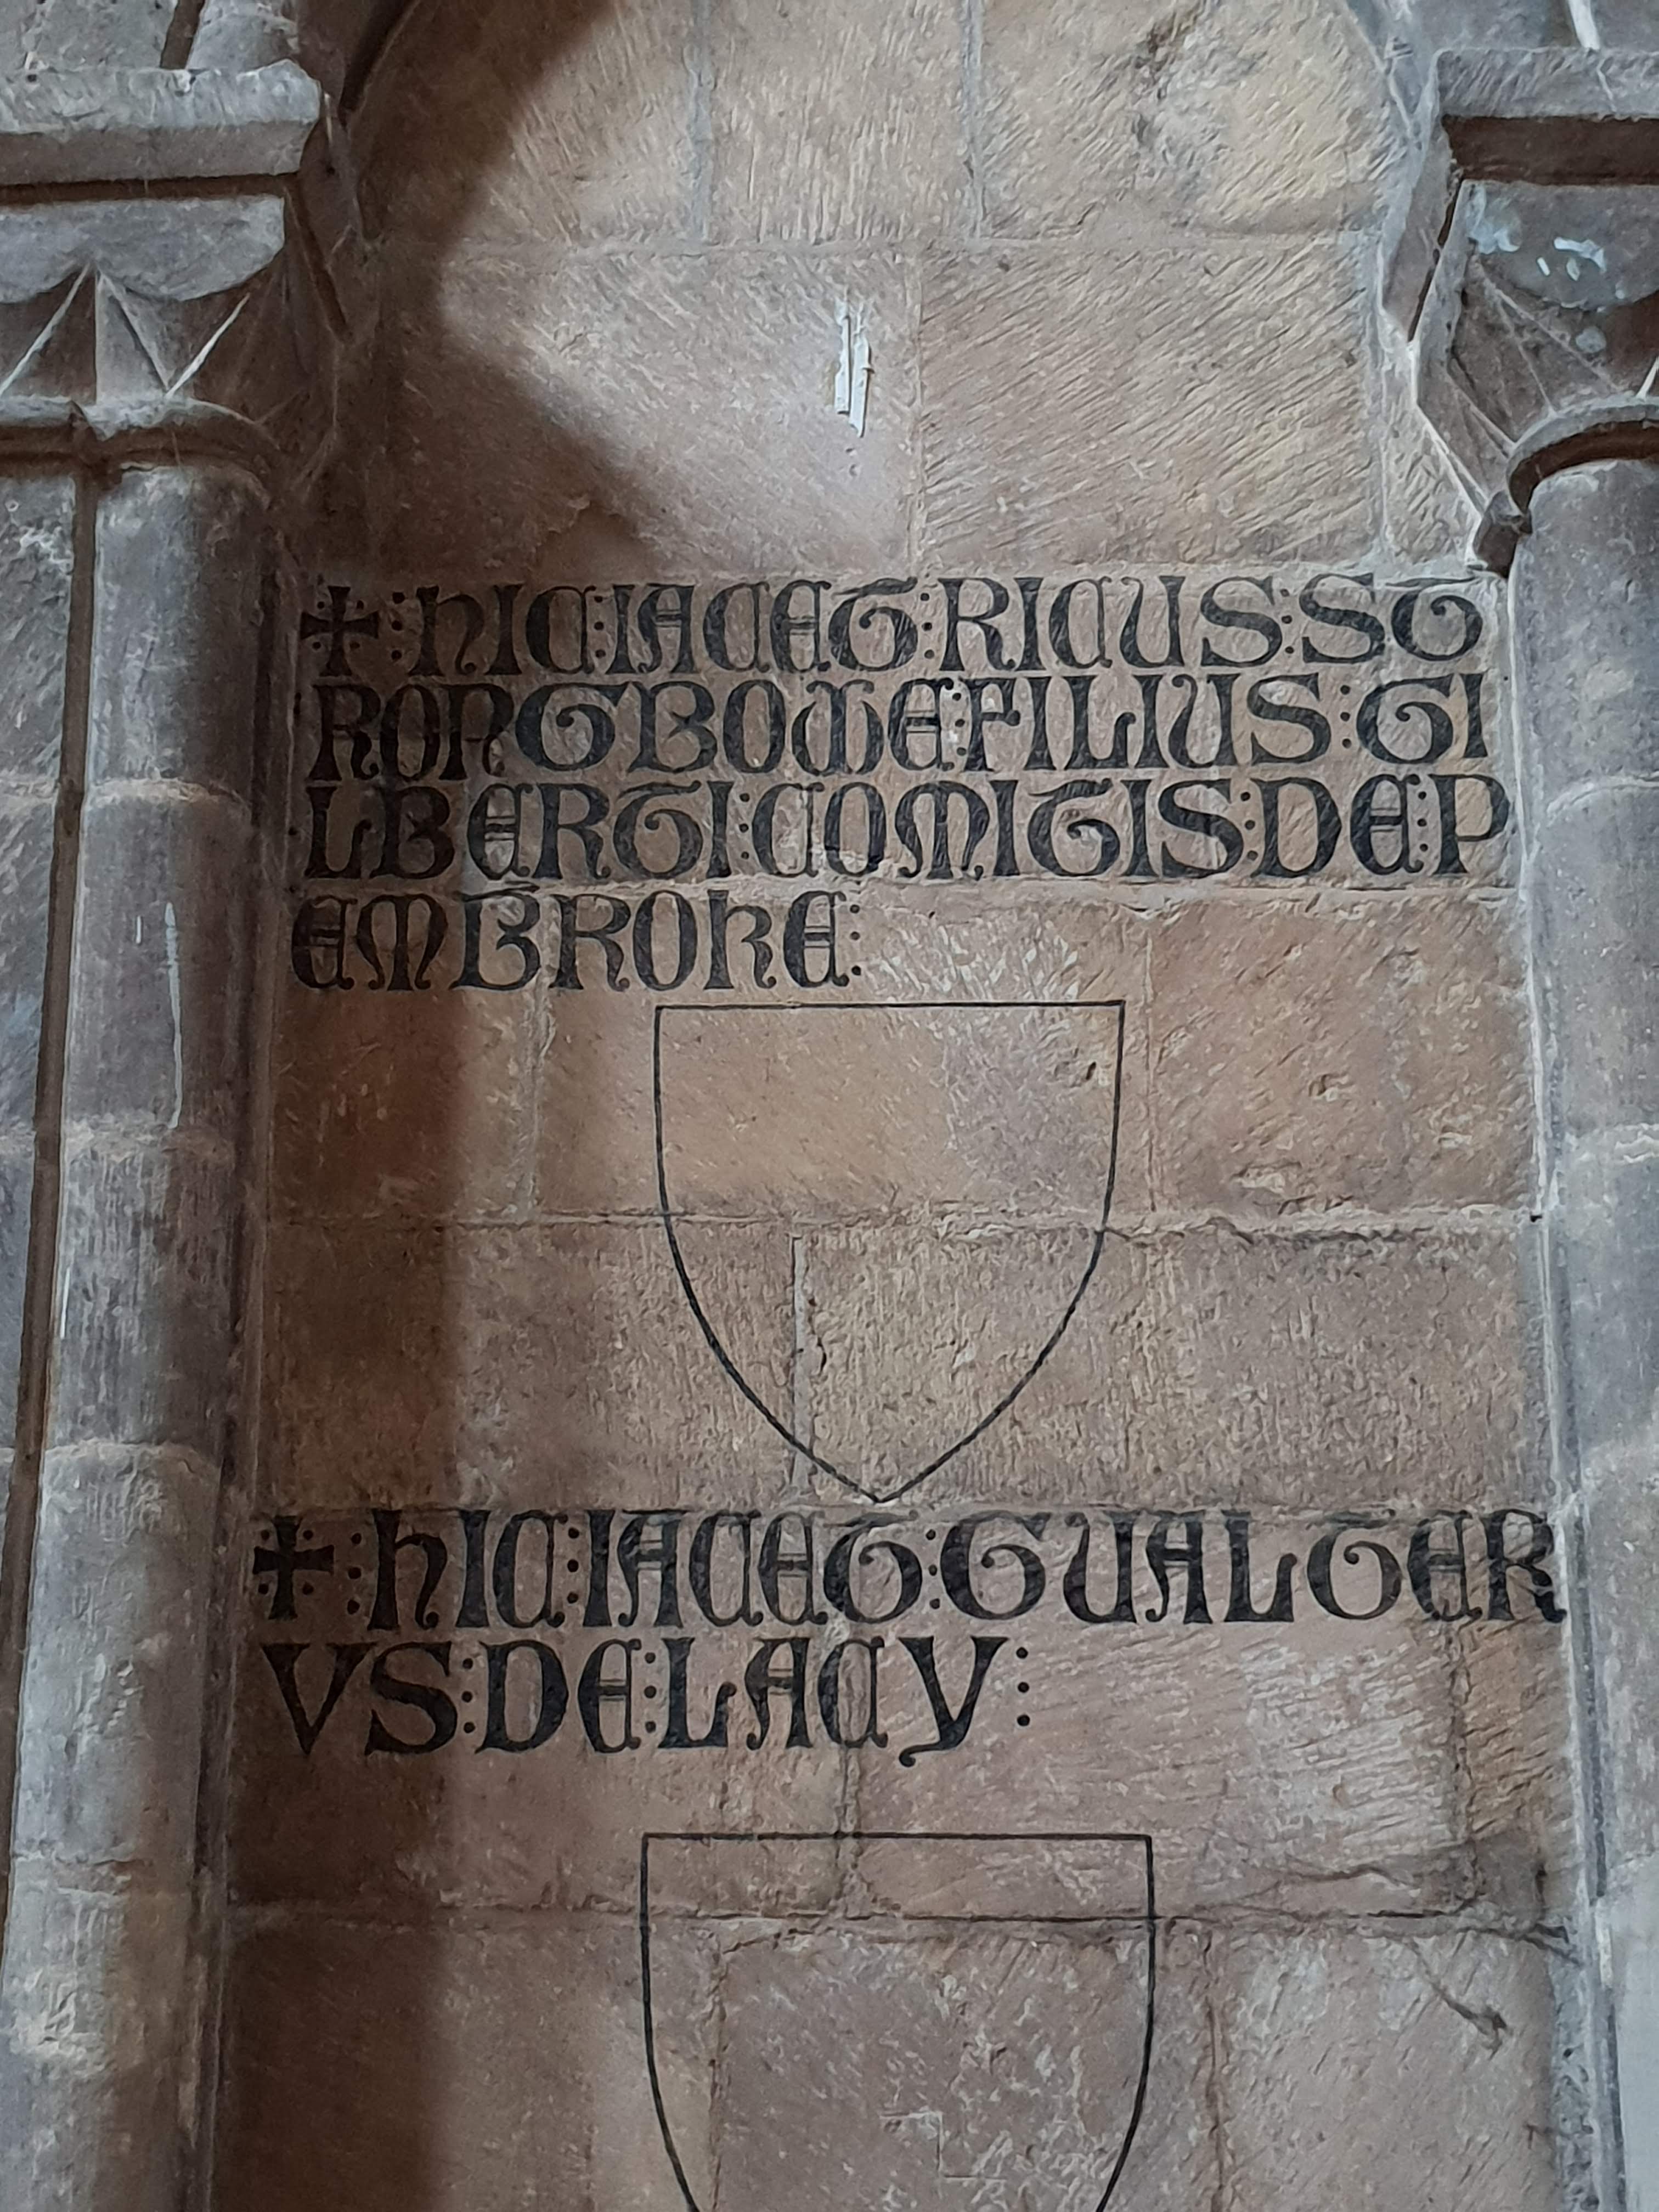 ✚ : HIC : IACET : RICUS : ST
RONGBOWE : FILIUS : GI
LBERTI : COMITIS : DE : P
EMBROKE :
✚ : HIC : IACET : GUALTER
VS : DE : LACY :